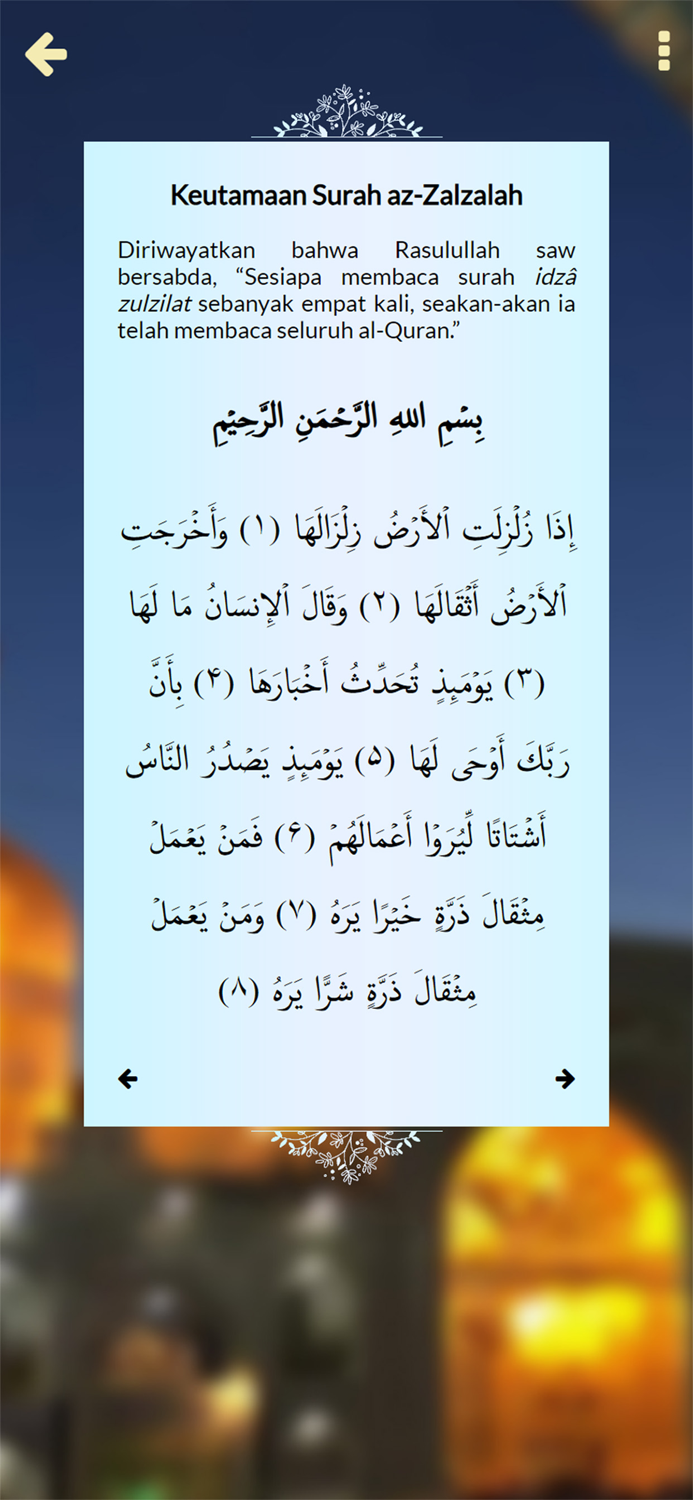 Keutamaan Surah az-Zalzalah
Diriwayatkan bahwa Rasulullah saw
bersabda, “Sesiapa membaca surah idzâ
zulzilat sebanyak empat kali, seakan-akan ia
telah membaca seluruh al-Quran.”
بِسْمِ اللهِ الرَّحْمَنِ الرَّحِيْمِ
إِذَا زُلْزِلَتِ ٱلأَرْضُ زِلْزَالَهَا (۱) وَأَخْرَجَتِ
ٱلأَرْضُ أَثْقَالَهَا (۲) وَقَالَ ٱلإِنسَانُ مَا لَهَا
(۳) يَوْمَئِذٍ تُحَدِّثُ أَخْبَارَهَا (۴) بِأَنَّ
رَبَّكَ أَوْحَى لَهَا (۵) يَوْمَئِذٍ يَصْدُرُ النَّاسُ
أَشْتَاتًا لِّيُرَوْا أَعْمَالَهُمْ (۶) فَمَنْ يَعْمَلْ
مِثْقَالَ ذَرَّةٍ خَيْرًا يَرَهُ (۷) وَمَنْ يَعْمَلْ
مِثْقَالَ ذَرَّةٍ شَرًّا يَرَهُ (۸)